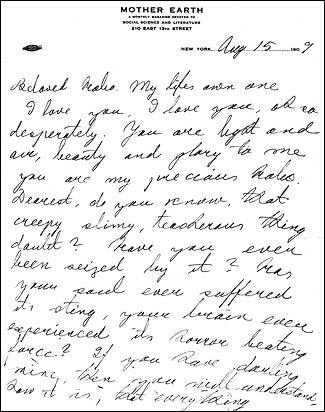 MOTHER EARTH
A MONTHLY MAGAZINE DEVOTED TO
SOCIAL SCIENCE AND LITERATURE
210 EAST 13TH STREET
NEW YORK, Aug 15 1909
Beloved Hobo. My lifes own one
I love you, I love you, oh so
desperately. You are light and
air, beauty and glory to me
you are my precious Hobo.
Dearest, do you know, that
creepy slimy, teacherous thing
doubt? Have you ever
been seized by it? Has
your soul ever suffered
its sting, your brain ever
experienced its horror beating
force? If you have darling
mine, then you will understand,
how it is, that everything